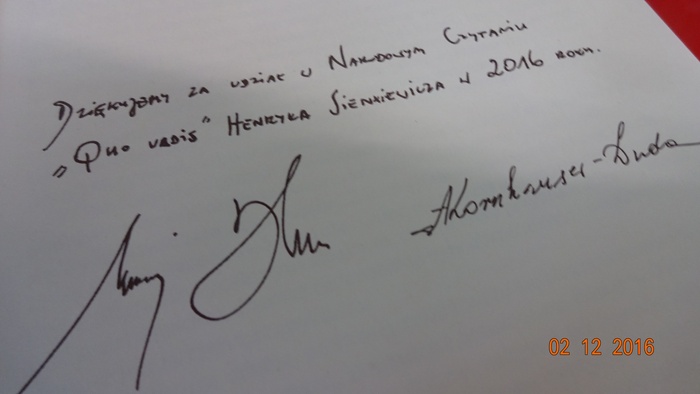 Dziękujemy za udział w Narodowym Czytaniu
„Quo vadis" Henryka Sienkiewicza w 2016 roku.
AKornhauser-Duda
02 12 2016